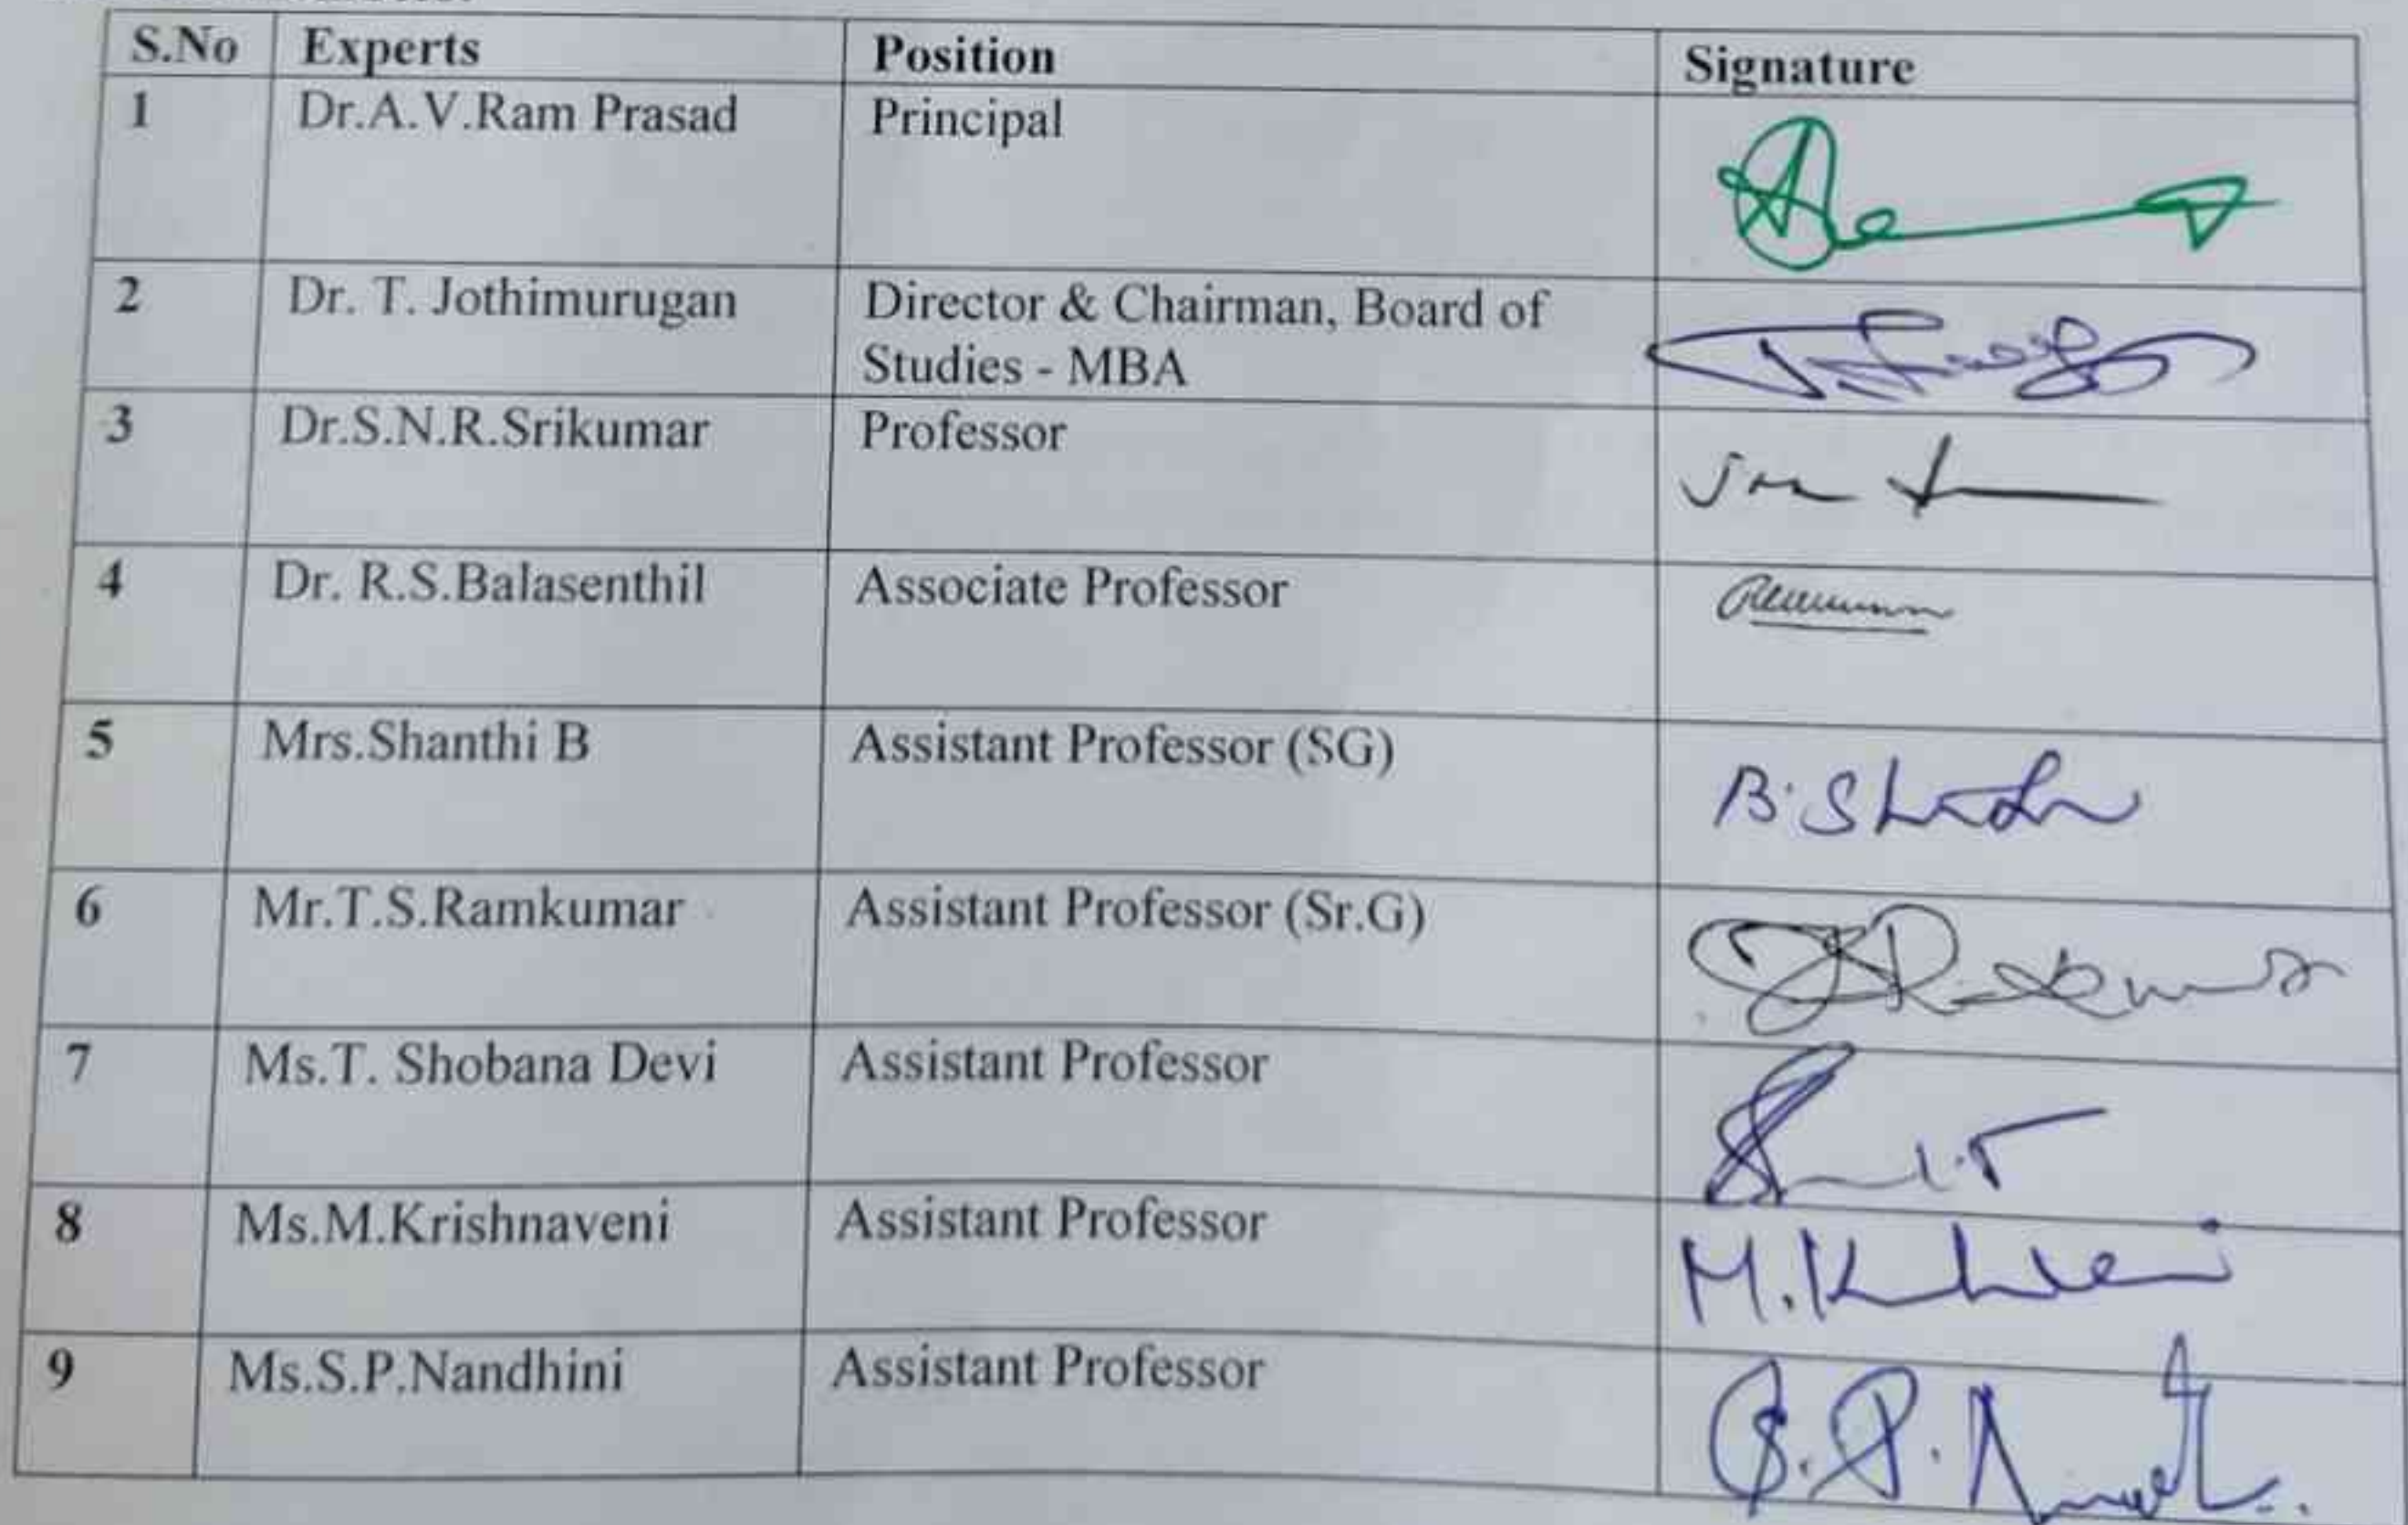 S.No Experts Position Signature
1 Dr.A.V.Ram Prasad Principal
2 Dr. T. Jothimurugan Director & Chairman, Board of
Studies - MBA
3 Dr.S.N.R.Srikumar Professor
4 Dr. R.S.Balasenthil Associate Professor
5 Mrs.Shanthi B Assistant Professor (SG)
B.
6 Mr.T.S.Ramkumar Assistant Professor (Sr.G)
7 Ms.T. Shobana Devi Assistant Professor
8 Ms.M.Krishnaveni Assistant Professor
M.
9 Ms.S.P.Nandhini Assistant Professor
S.P.